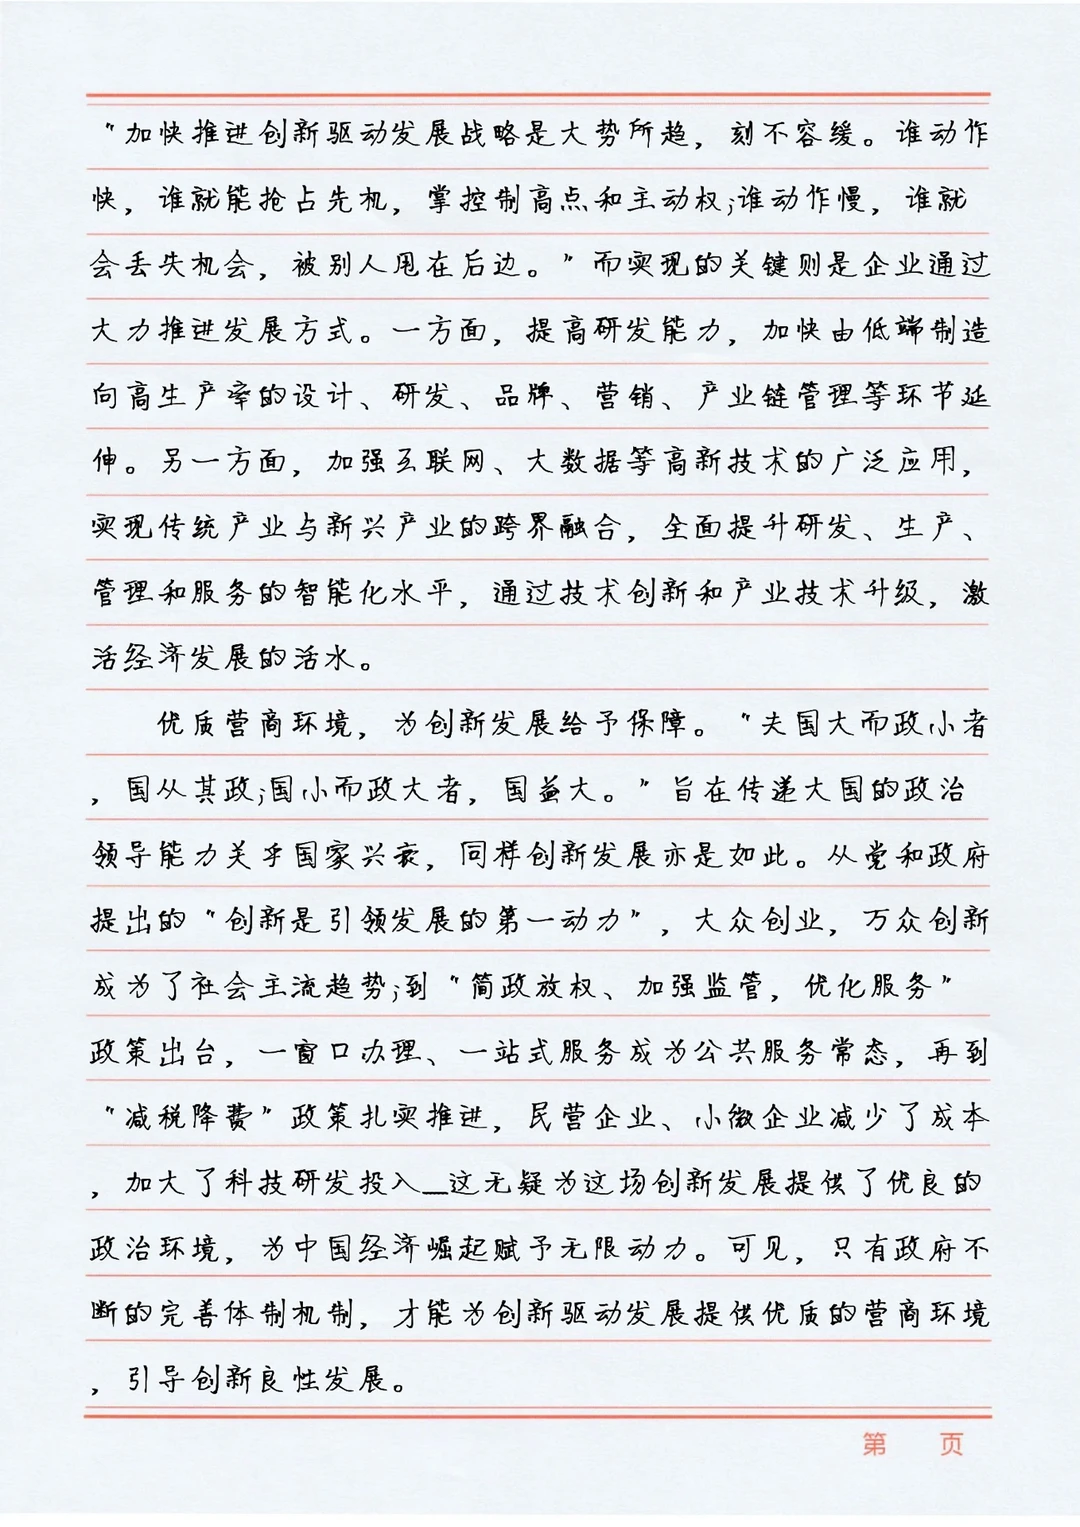 “加快推进创新驱动发展战略是大势所趋，刻不容缓。谁动作
快，谁就能抢占先机，掌控制高点和主动权;谁动作慢，谁就
会丢失机会，被别人甩在后边。”而实现的关键则是企业通过
大力推进发展方式。一方面，提高研发能力，加快由低端制造
向高生产率的设计、研发、品牌、营销、产业链管理等环节延
伸。另一方面，加强互联网、大数据等高新技术的广泛应用，
实现传统产业与新兴产业的跨界融合，全面提升研发、生产、
管理和服务的智能化水平，通过技术创新和产业技术升级，激
活经济发展的活水。
优质营商环境，为创新发展给予保障。“夫国大而政小者
，国从其政;国小而政大者，国益大。”旨在传递大国的政治
领导能力关乎国家兴衰，同样创新发展亦是如此。从党和政府
提出的“创新是引领发展的第一动力”，大众创业，万众创新
成为了社会主流趋势;到“简政放权、加强监管，优化服务”
政策出台，一窗口办理、一站式服务成为公共服务常态，再到
“减税降费”政策扎实推进，民营企业、小微企业减少了成本
，加大了科技研发投入__这无疑为这场创新发展提供了优良的
政治环境，为中国经济崛起赋予无限动力。可见，只有政府不
断的完善体制机制，才能为创新驱动发展提供优质的营商环境
，引导创新良性发展。
第 页